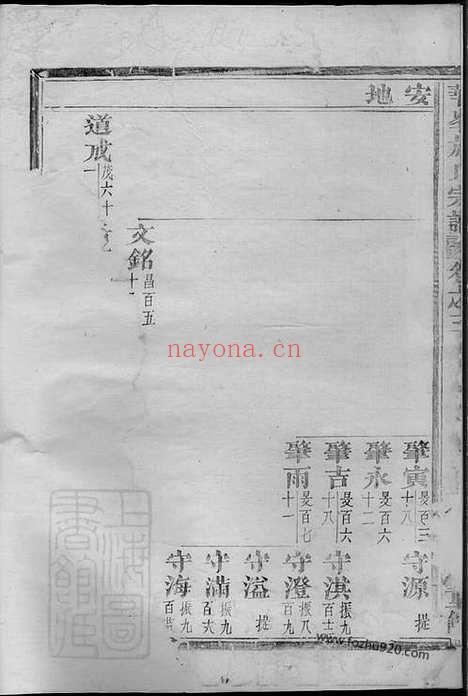 宗譜卷之三
安地
肇寅 旻百三十八
守源 提
肇永 旻百六十二
肇吉 旻百六十八
守淇 振九百十三
肇雨 旻百七十一
守澄 振八
守溢 提
守滿 振九百六
守海 振九百
文銘 昌百五十
道成 茂六十一
nayona.cn
上海圖書館
www.fozhu920.com